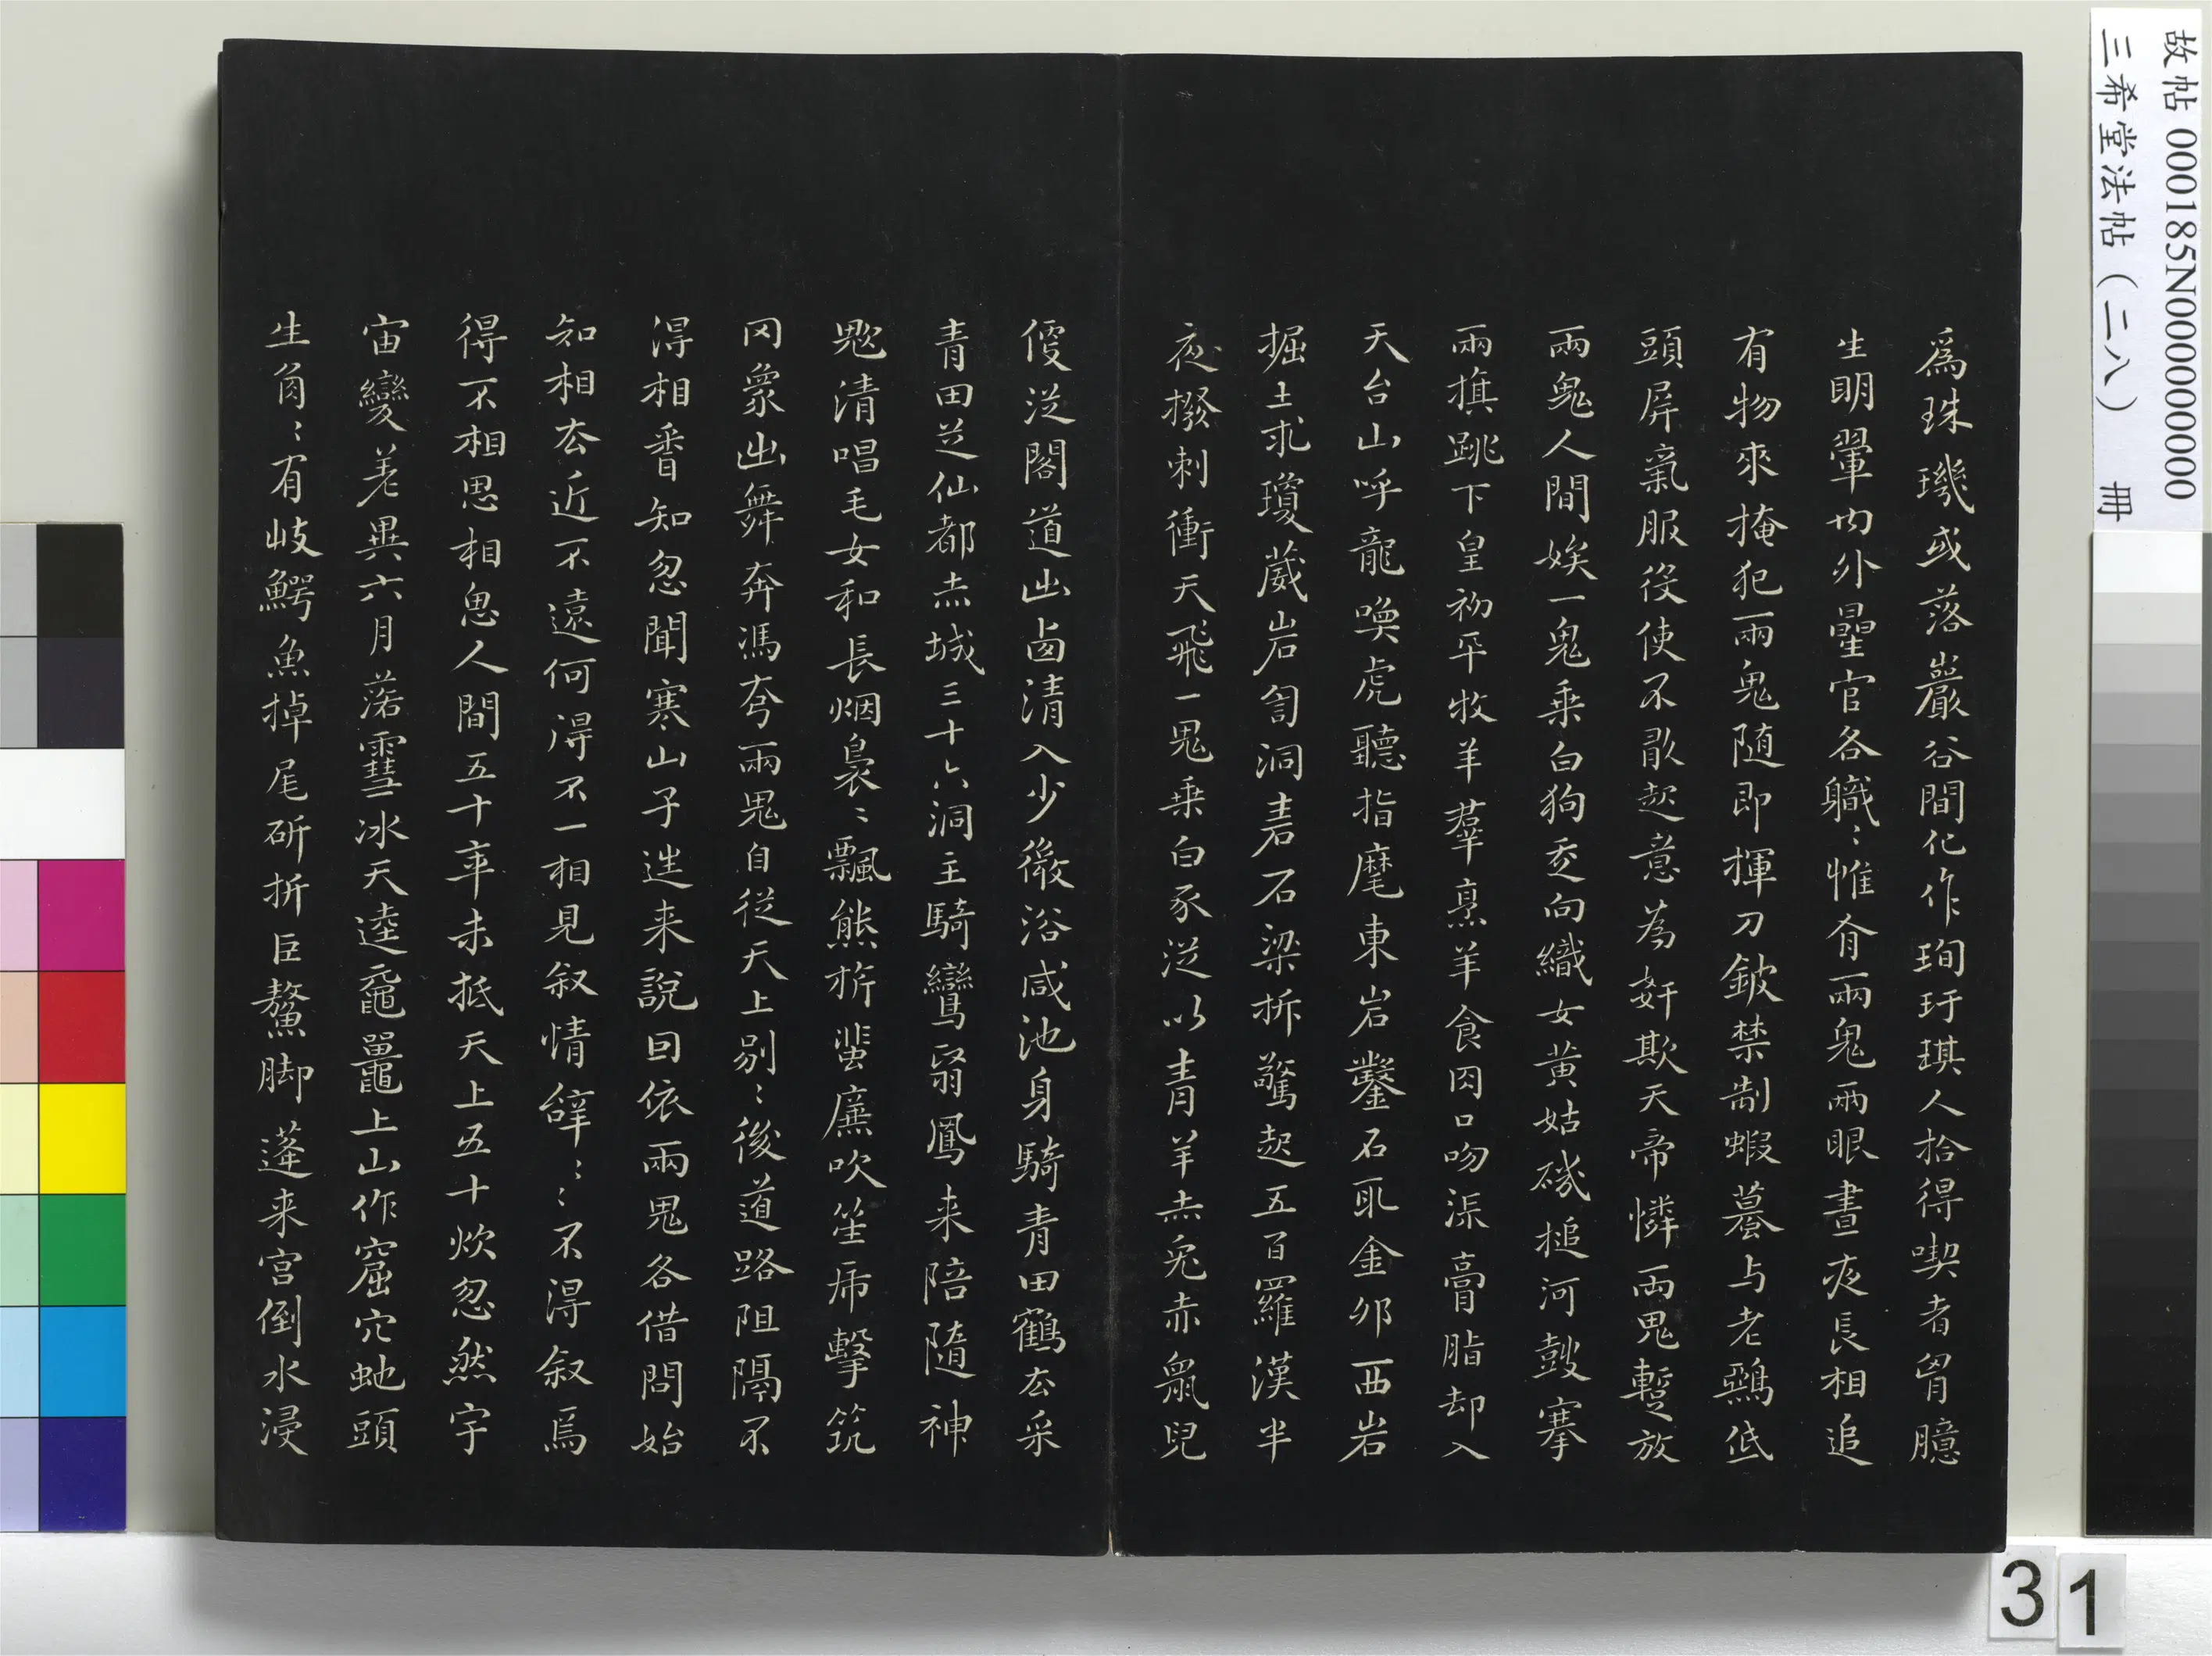 故帖 000185N000000000
三希堂法帖（二八） 冊
為珠璣或落巖谷間化作珣玗琪人拾得喫者胷臆
生明翬内外星官各職〻惟有兩鬼兩眼晝夜長相追
有物來掩犯兩鬼随即揮刀鈹禁制蝦蟇与老鵶低
頭屏氣服役使不敢起意為奸欺天帝憐兩鬼蹔放
兩鬼人間娭一鬼乗白狗走向織女黄姑磯搥河鼓搴
兩旗跳下皇初平牧羊羣烹羊食肉口吻流膏脂却入
天台山呼龍喚虎聽指麾東岩鑿石取金卯西岩
掘土求瓊葳岩訇洞砉石梁拆驚起五百羅漢半
夜撥刺衝天飛一鬼乗白豕從以青羊赤兎赤鼠兒
便從閣道出西清入少微浴咸池身騎青田鶴去采
青田芝仙都赤城三十六洞主騎鸞翳鳳来陪随神
鬼清唱毛女和長烟裊〻飄熊旂蜚廉吹笙虎擊筑
罔象出舞奔馮夷兩鬼自從天上別〻後道路阻隔不
得相畨知忽聞寒山子迯来說因依兩鬼各借問始
知相去近不遠何得不一相見叙情辝〻〻不得叙焉
得不相思相思人間五十年未抵天上五十炊忽然宇
宙變差異六月落雪冰天逵黿鼉上山作窟穴虵頭
生角〻有岐鰐魚掉尾斫折巨鰲脚蓬来宫倒水浸
31